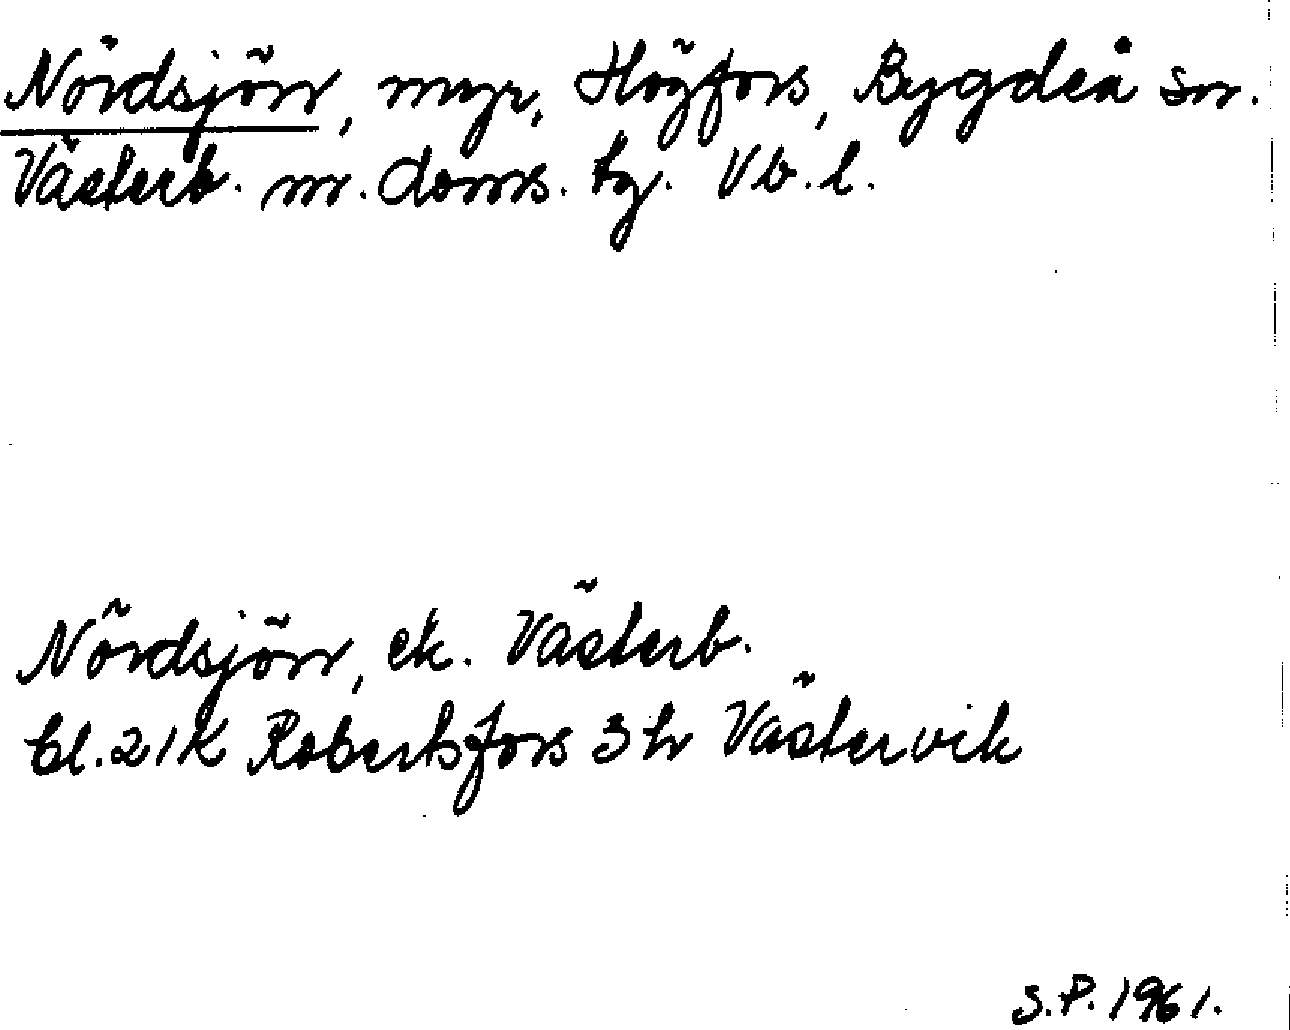 Nördsjörr, myr, Högfors, Bygdeå sn.
Västerb. n. doms. tg. Vb. l.
Nördsjörr, ek. Västerb.
bl. 21K Robertsfors 3h Västervik
S.P. 1961.